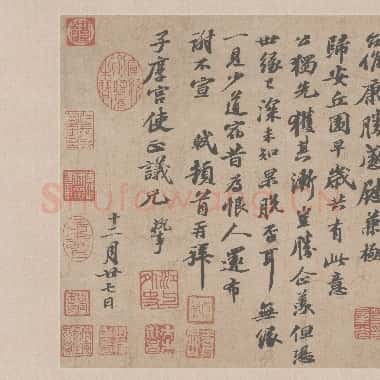 候康勝感慰兼極
歸安丘園早歲共有此意
公獨先獲其漸豈勝企羨但恐
世緣已深未知果脫否耳無緣
一見少道宿昔為恨人還布
謝不宣 軾頓首再拜
子厚宮使正議兄執事
十二月廿七日
Shufawang.CN